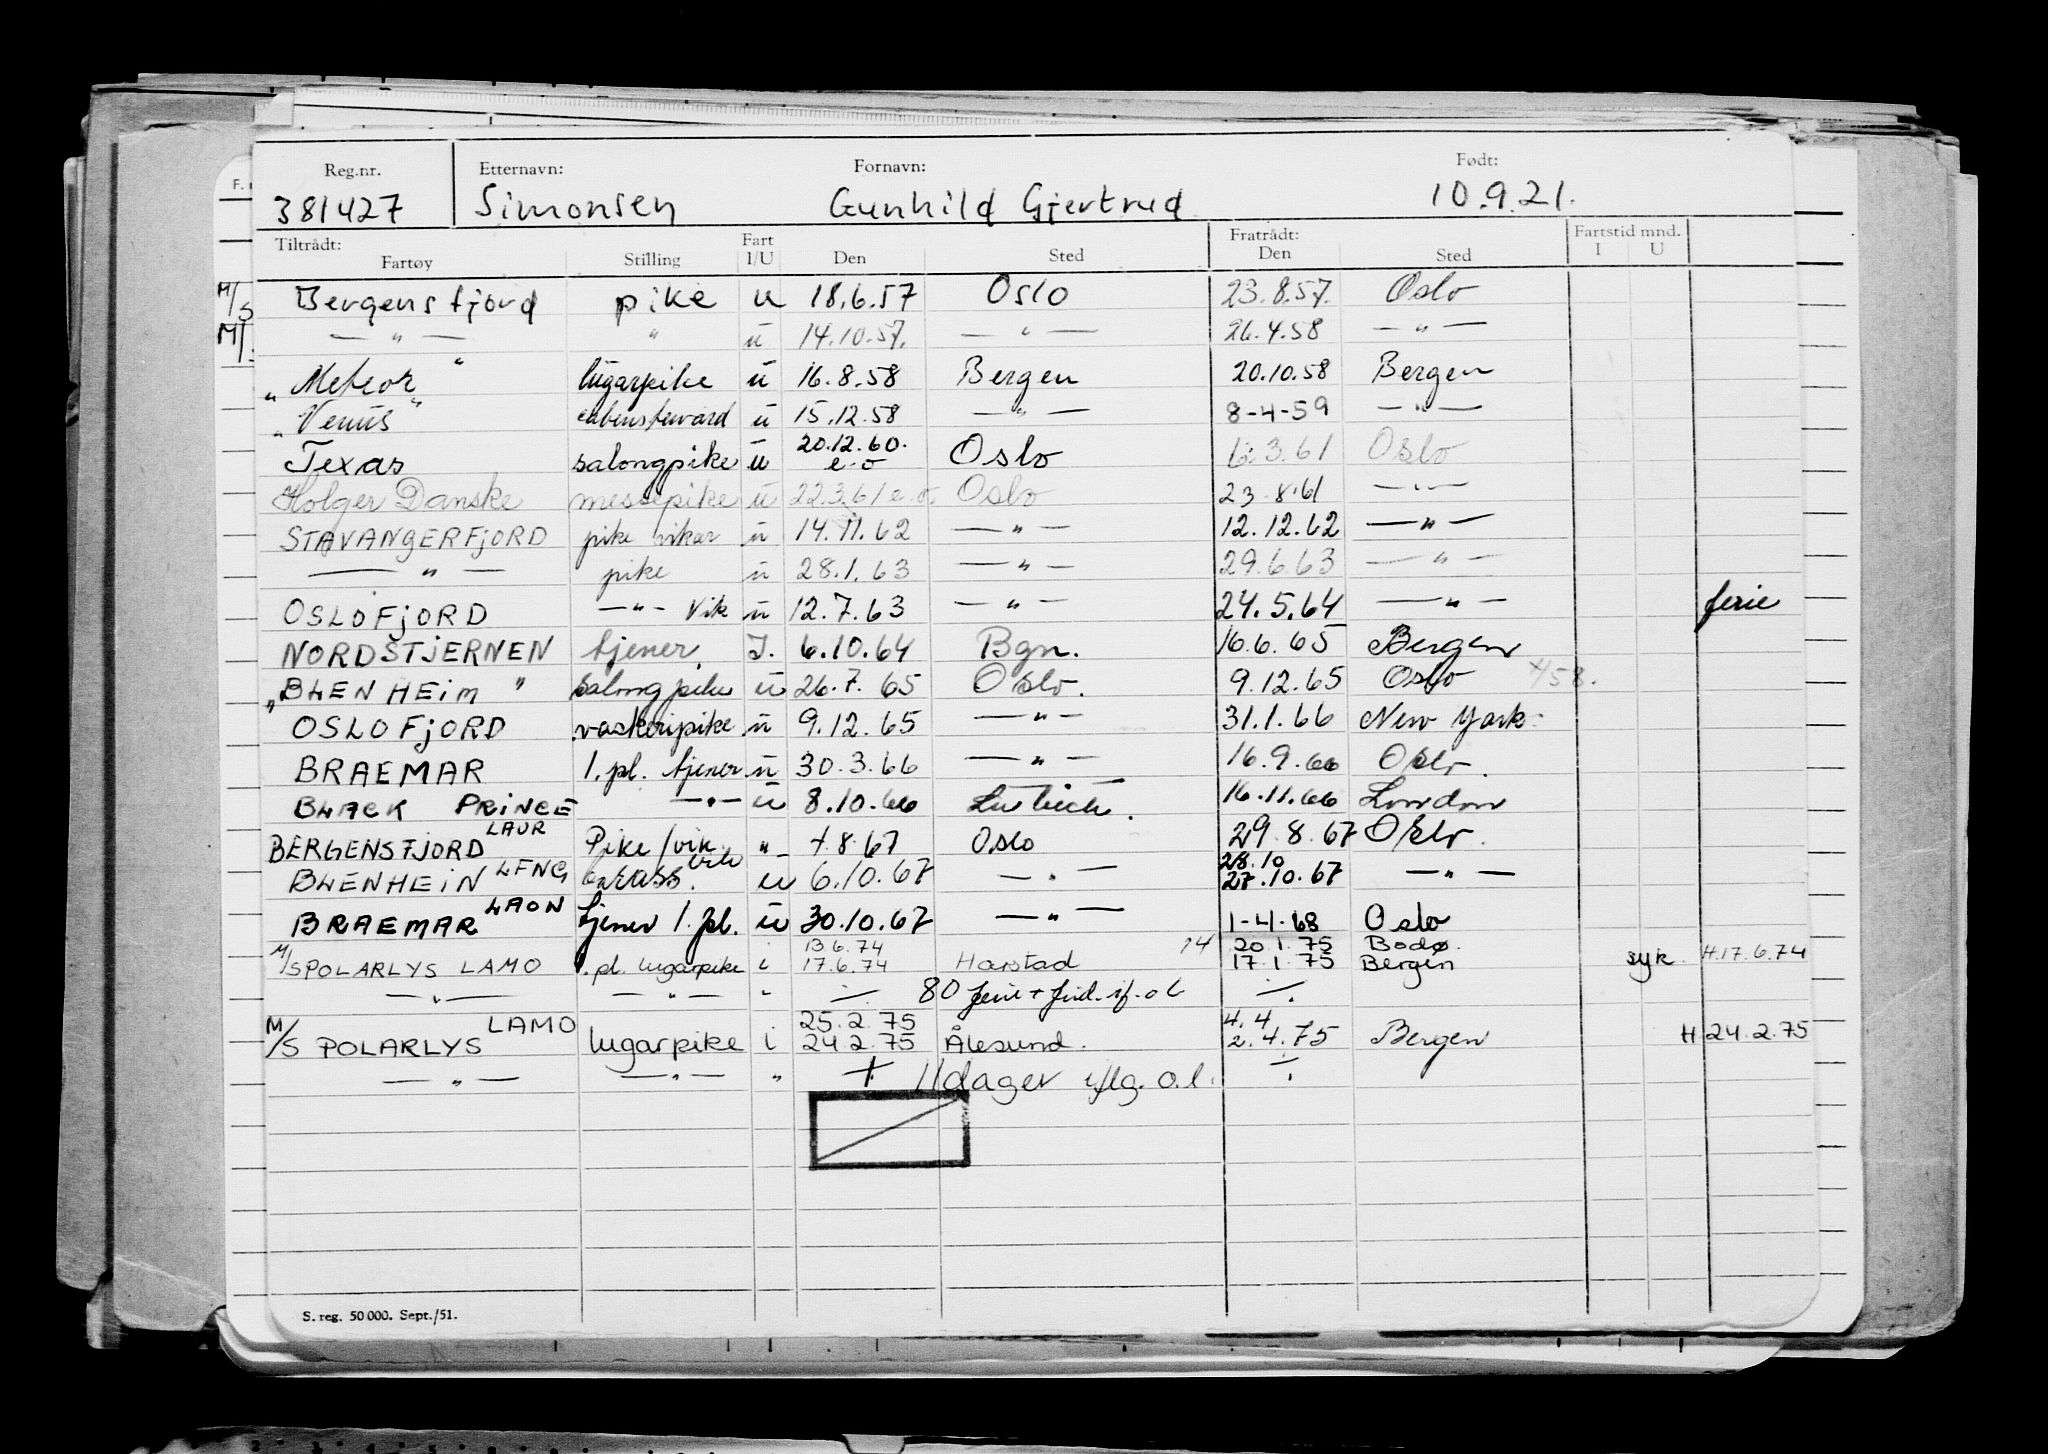 Reg.nr. Etternavn: Fornavn: Født:
381427 Simonsen Gunhild Gjertrud 10.9.21.
Tiltrådt: Fart Fratrådt: Fartstid mnd.
Fartøy Stilling I/U Den Sted Den Sted I U
M/S Bergensfjord pike u 18.6.57 Oslo 23.8.57. Oslo
M/ — " — " u 14.10.57. — " — 26.4.58 — " —
"Meteor" lugarpike u 16.8.58 Bergen 20.10.58 Bergen
"Venus" u 15.12.58 — " — 8-4-59 — " —
Texas salongpike u 20.12.60. e.o Oslo 6.3.61 Oslo
Holger Danske messepike u 22.3.61 e.o Oslo 23.8.61 — " —
STAVANGERFJORD pike vikar u 14.11.62 — " — 12.12.62 — " —
— " — pike u 28.1.63 — " — 29.6.63 — " —
OSLOFJORD — " — Vik u 12.7.63 — " — 24.5.64 — " — ferie
NORDSTJERNEN tjener I. 6.10.64 Bgn. 16.6.65 Bergen
"BLENHEIM" salongpike u 26.7.65 Oslo. 9.12.65 Oslo 458.
OSLOFJORD vaskeripike u 9.12.65 — " — 31.1.66 New York
BRAEMAR 1.pl. tjener u 30.3.66 — " — 16.9.66 Oslo.
BLACK PRINCE — " — u 8.10.66 Lubeck. 16.11.66 London
BERGENSFJORD LAUR Pike/vik " 8.67 Oslo 29.8.67 Oslo.
BLENHEIN LFNG u 6.10.67 — " — 28.10 27.10.67 — " —
BRAEMAR LAON tjener 1.pl. u 30.10.67 — " — 1-4-68 Oslo
13.6.74 14 20.1.75 Bodø.
M/S POLARLYS LAMO .pl. lugarpike i 17.6.74 Harstad 17.1.75 Bergen syk. H.17.6.74
— " — — " — " ÷ 80 ferie + ÷
LAMO 25.2.75 4.4
M/S POLARLYS lugarpike i 24.2.75 Ålesund. 2.4.75 Bergen H 24.2.75
— " — — " — " + 11 dager iflg. o.l. ÷
S. reg. 50 000. Sept./51.